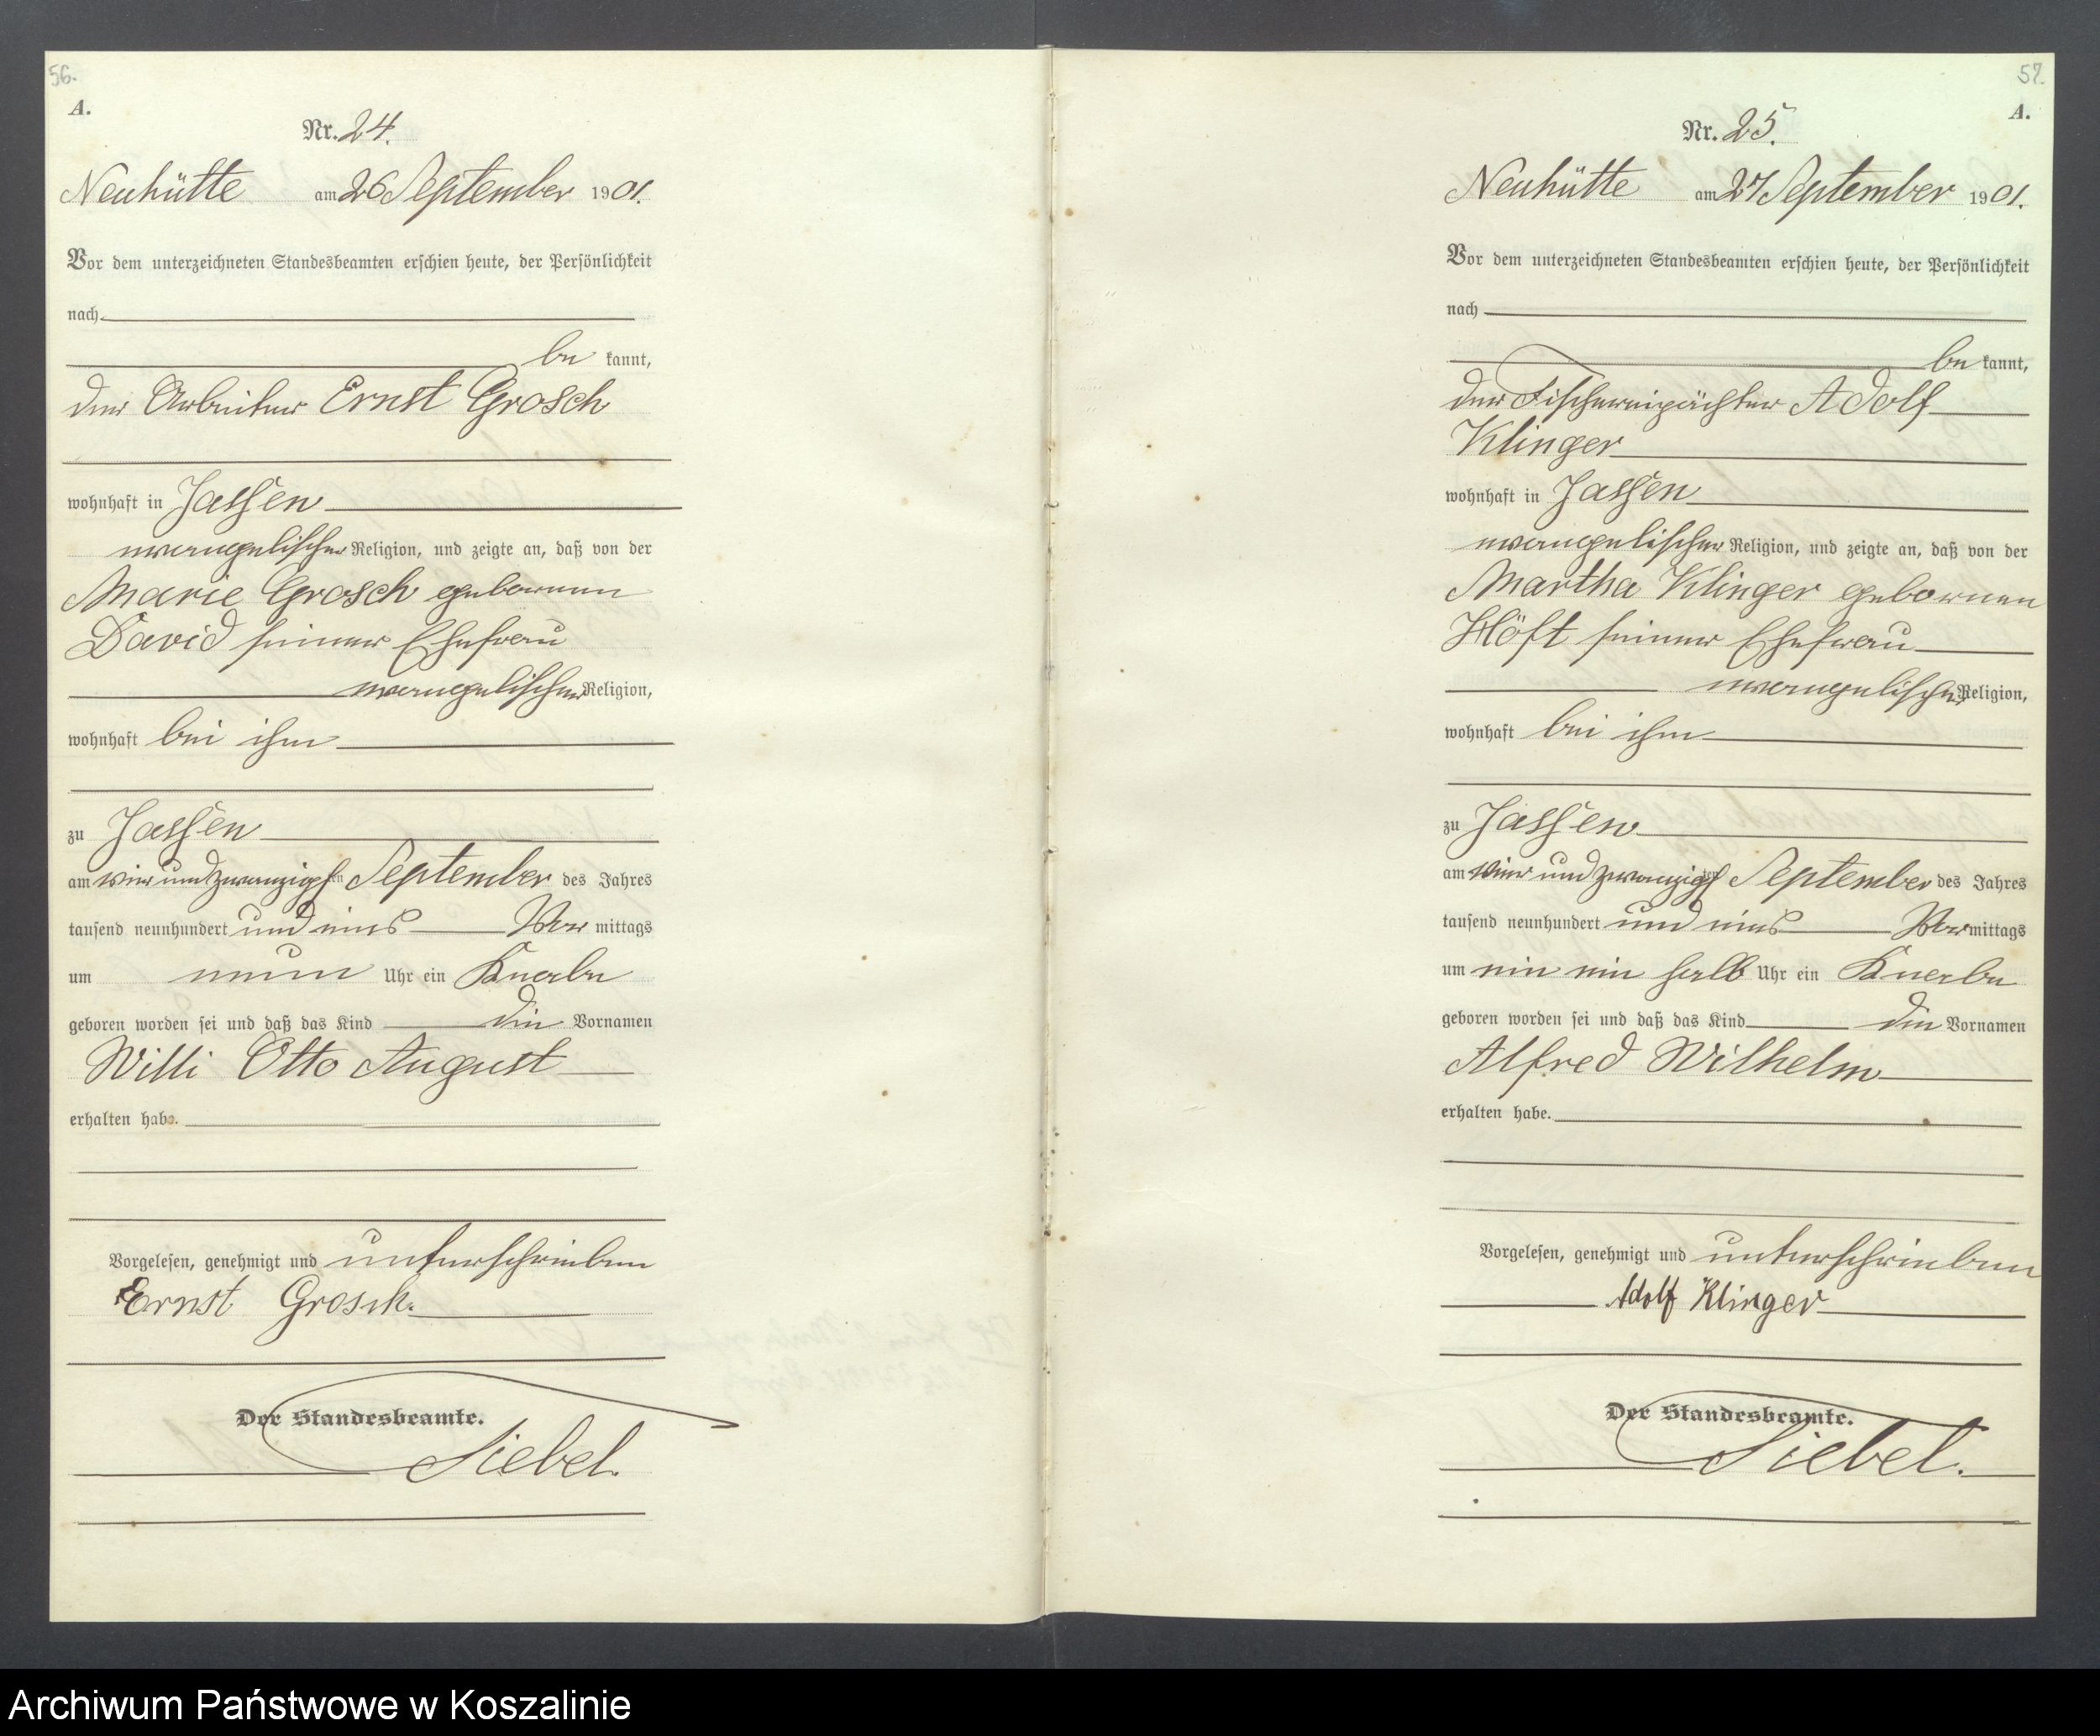 56.
A.
Nr. 24.
Neuhütte am 26 September 1901.
Vor dem unterzeichneten Standesbeamten erschien heute, der Persönlichkeit
nach
be kannt,
der Arbeiter Ernst Grosch
wohnhaft in Jassen
evangelischer Religion, und zeigte an, daß von der
Marie Grosch geborenen
David seiner Ehefrau
evangelischer Religion,
wohnhaft bei ihm
zu Jassen
am vier und zwanzigsten September des Jahres
tausend neunhundert und eins Vor mittags
um neun Uhr ein Knabe
geboren worden sei und daß das Kind die Vornamen
Willi Otto August
erhalten habe.
Vorgelesen, genehmigt und unterschrieben
Ernst Grosch.
Der Standesbeamte.
Siebel.
57.
A.
Nr. 25.
Neuhütte am 27 September 1901.
Vor dem unterzeichneten Standesbeamten erschien heute, der Persönlichkeit
nach
be kannt,
der Fischereipächter Adolf
Klinger
wohnhaft in Jassen
evangelischer Religion, und zeigte an, daß von der
Martha Klinger geborenen
Höft seiner Ehefrau
evangelischer Religion,
wohnhaft bei ihm
zu Jassen
am vier und zwanzigsten September des Jahres
tausend neunhundert und eins Vor mittags
um ein ein halb Uhr ein Knabe
geboren worden sei und daß das Kind die Vornamen
Alfred Wilhelm
erhalten habe.
Vorgelesen, genehmigt und unterschrieben
Adolf Klinger
Der Standesbeamte.
Siebel.
Archiwum Państwowe w Koszalinie